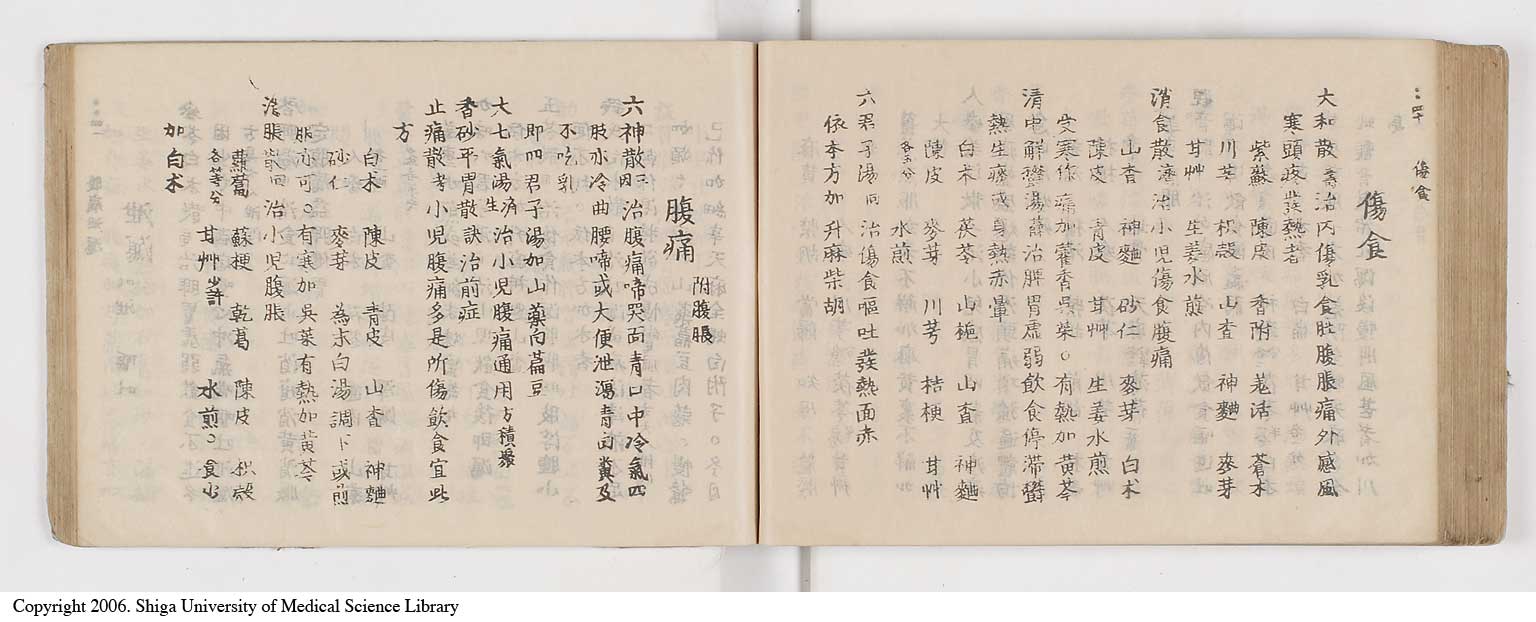 傷食
大和散 治内傷乳食肚腹脹痛外感風
寒頭疼發熱者
紫蘇 陳皮 香附 羗活 蒼朮
川芎 枳殻 山査 神麯 麥芽
甘艸 生姜水煎
消食散 治小児傷食腹痛
山査 神麯 砂仁 麥芽 白朮
陳皮 青皮 甘艸 生姜水煎
受寒作痛加藿香呉茱○有熱加黄芩
清中解欝湯 治脾胃虚弱飲食停滞欝
熱生痰或身熱赤暈
白朮 茯苓 山梔 山査 神麯
陳皮 麥芽 川芎 桔梗 甘艸
各等分 水煎
六君子湯 治傷食嘔吐發熱面赤
依本方加升麻柴胡
傷食
腹痛 附腹脹
六神散 治腹痛啼哭面青口中冷氣四
肢氷冷曲腰啼或大便泄瀉青白糞及
不吃乳
即四君子湯加山藥白萹豆
大七氣湯 治小児腹痛通用方積聚
香砂平胃散 治前症
止痛散 小児腹痛多是所傷飲食宜此
方
白朮 陳皮 青皮 山査 神麯
砂仁 麥芽 為末白湯調下或煎
服亦可○有寒加呉茱有熱加黄芩
消脹散 治小児腹脹
蘿蔔 蘇梗 乾葛 陳皮 枳殻
各等分 甘艸少許 水煎○食少
加白朮
Copyright 2006. Shiga University of Medical Science Library